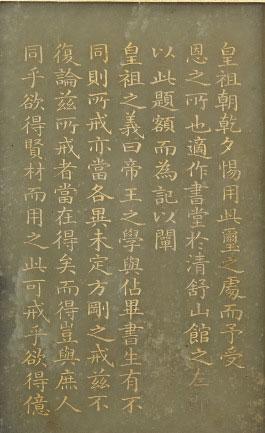 皇祖朝乾夕惕用此璽之處而予受
恩之所也適作書堂於清舒山館之左
以此題額而為記以闡
皇祖之義曰帝王之學與佔畢書生有不
同則所戒亦當各異未定方剛之戒茲不
復論茲所戒者當在得矣而得豈與庶人
同乎欲得賢材而用之此可戒乎欲得億